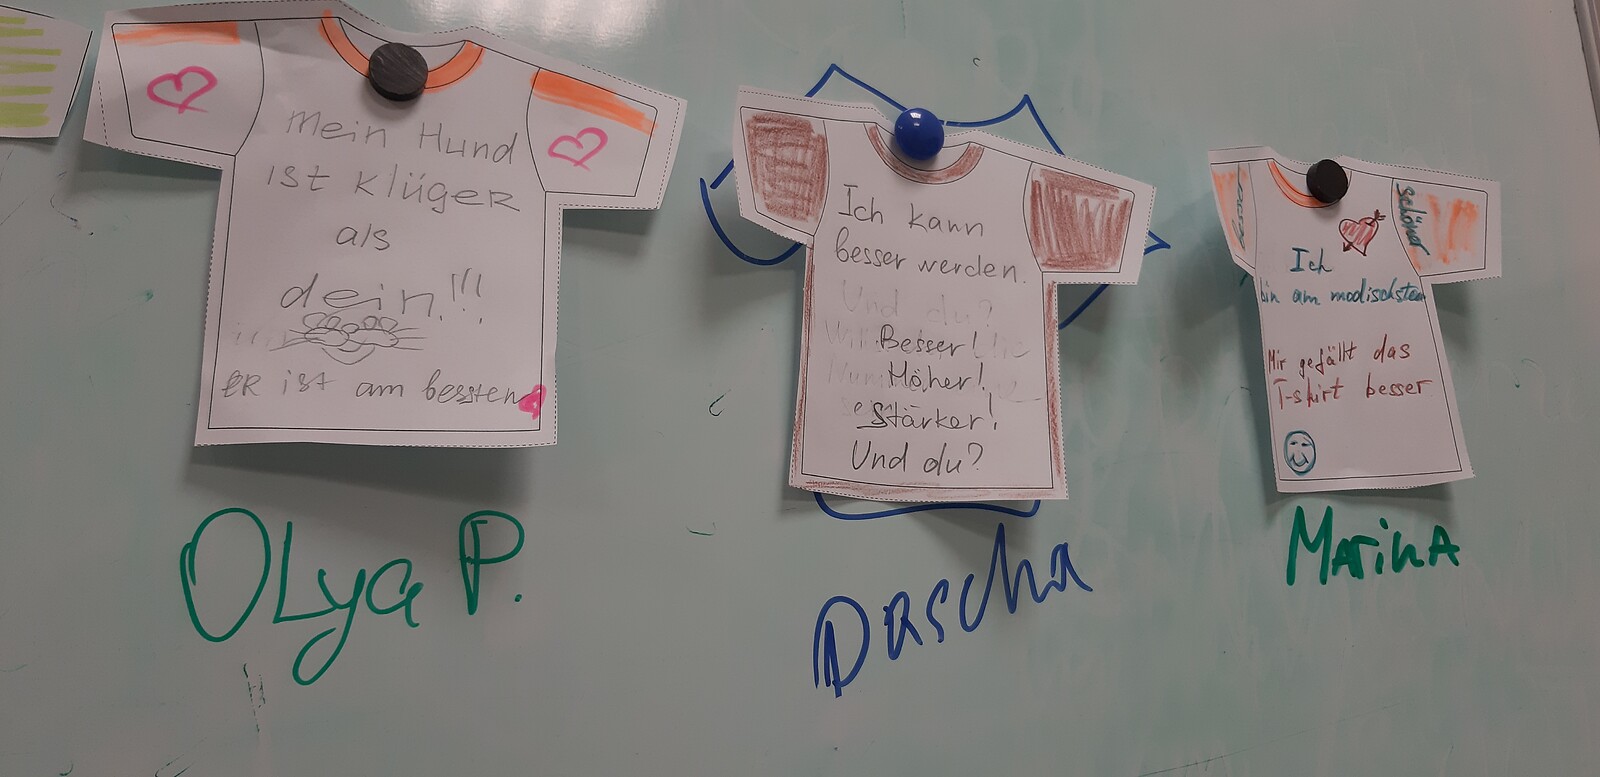 Mein Hund
ist klüger
als
dein!!!
ER ist am bessten
Ich kann
besser werden.
Und du?
Besser!
Höher!
Stärker!
Und du?
schöner
Ich
bin am modischsten
Mir gefällt das
T-shirt besser
OLya P.
Dascha
MArinA